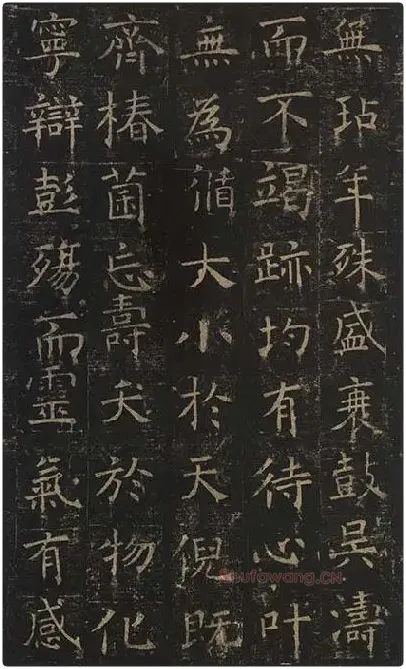 無玷年殊盛衰鼓吴濤
而不竭跡均有待心叶
無為循大小於天倪既
齊椿菌忘壽夭於物化
寧辯彭殤而靈氣有感
shufawang.CN